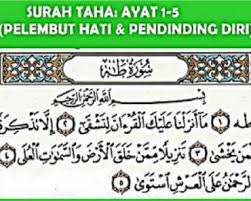 SURAH TAHA: AYAT 1-5
(PELEMBUT HATI & PENDINDING DIRI
سُورَةُ طٰهٰ
بِسْمِ اللَّهِ الرَّحْمَٰنِ الرَّحِيمِ
طه ١ مَا أَنزَلْنَا عَلَيْكَ الْقُرْءَانَ لِتَشْقَىٰ ٢ إِلَّا تَذْكِرَةً
مَن يَخْشَىٰ ٣ تَنزِيلًا مِّمَّنْ خَلَقَ الْأَرْضَ وَالسَّمَٰوَٰتِ الْعُلَى ٤
الرَّحْمَٰنُ عَلَى الْعَرْشِ اسْتَوَىٰ ٥